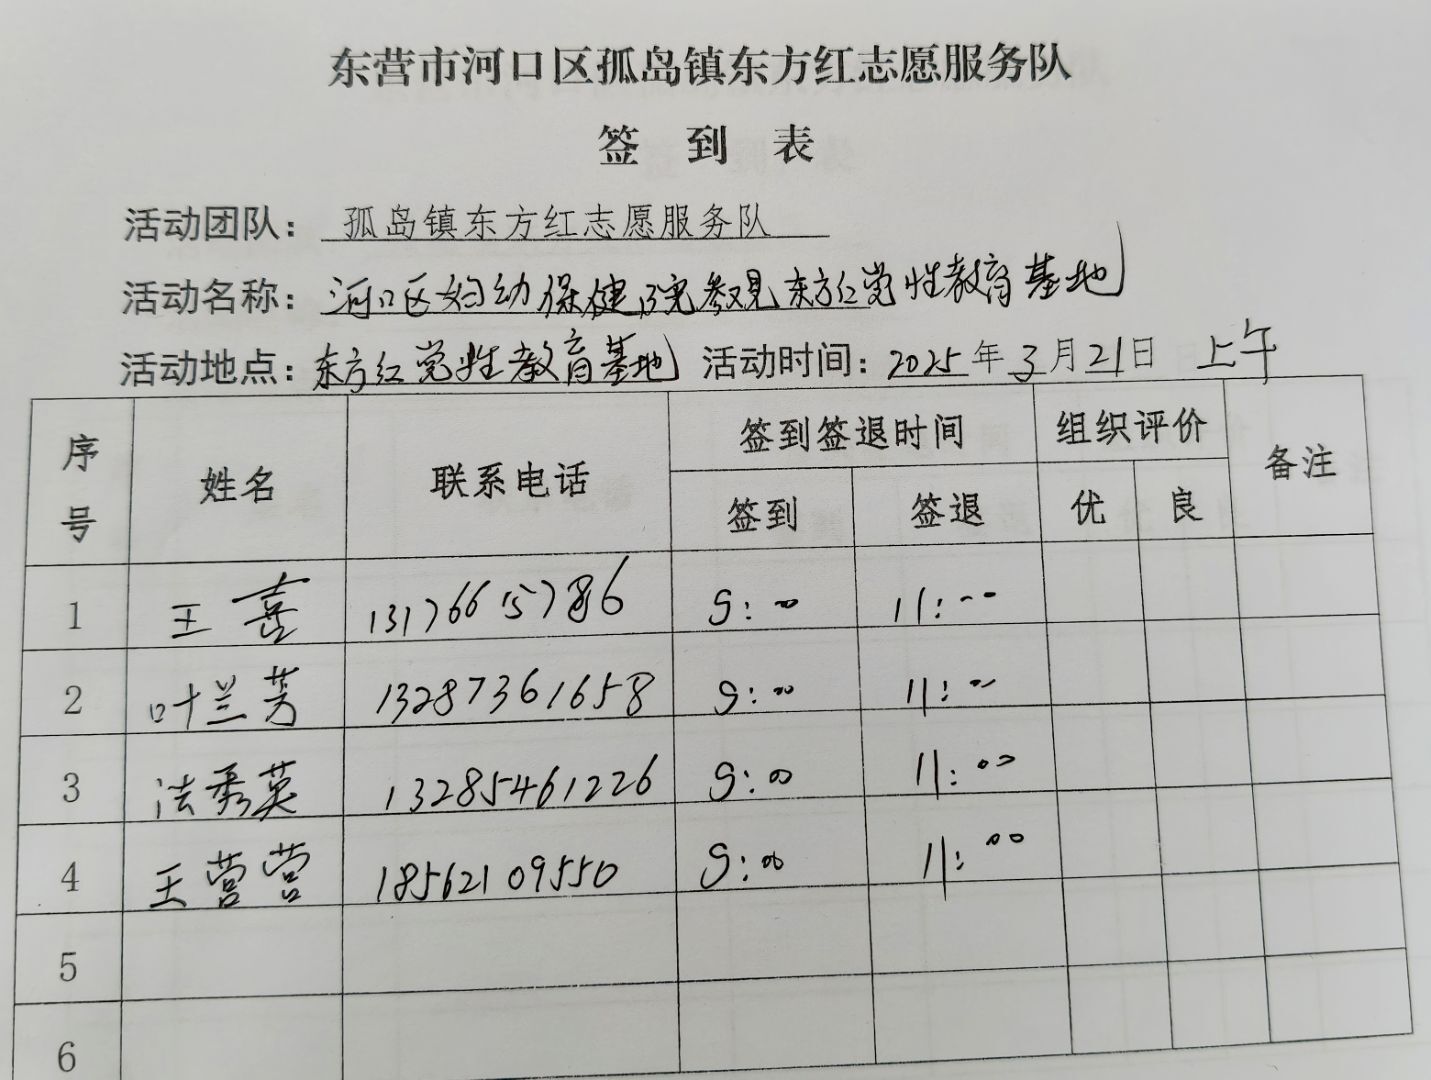 东营市河口区孤岛镇东方红志愿服务队
签 到 表
活动团队：孤岛镇东方红志愿服务队
活动名称：河口区妇幼保健院参观东方红党性教育基地
活动地点：东方红党性教育基地 活动时间：2025年3月21日 上午
序号 姓名 联系电话 签到签退时间 组织评价 备注
签到 签退 优 良
1 王喜 13176615786 9:00 11:00
2 叶兰芳 13287361658 9:00 11:00
3 法秀英 13285461226 9:00 11:00
4 王营营 18562109550 9:00 11:00
5
6